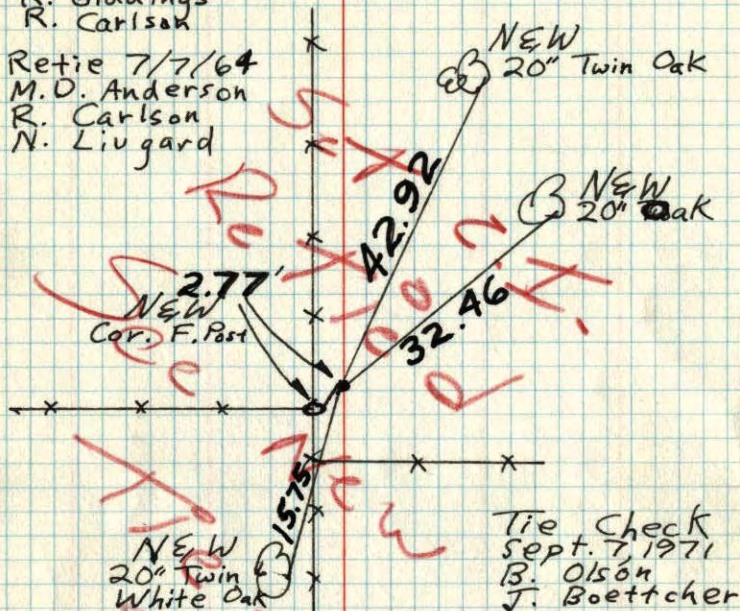 R. Giddings
R. Carlson
Retie 7/7/64
M.D. Anderson
R. Carlson
N. Livgard
N&W
20" Twin Oak
N&W
20" Oak
42.92
32.46
2.77'
N&W
Cor. F. Post
15.75
N&W
20" Twin
White Oak
Tie Check
Sept. 7, 1971
B. Olson
J. Boettcher
See
New
Tie